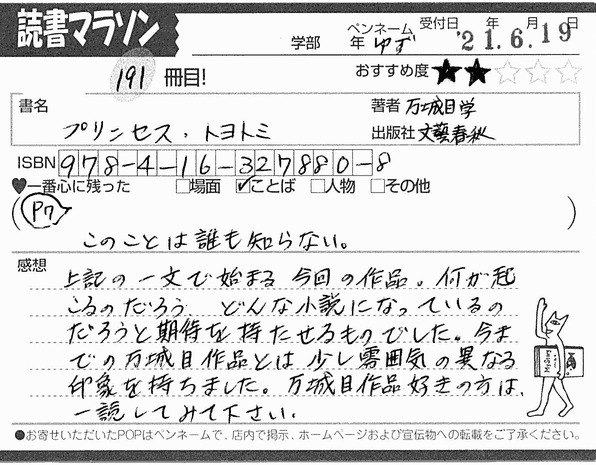 読書マラソン
学部 年 ペンネーム ゆず 受付日 '21.6.19 年 月 日
191 冊目! おすすめ度 ★★☆☆☆
書名 プリンセス・トヨトミ
著者 万城目学
出版社 文藝春秋
ISBN 978-4-16-327880-8
♥一番心に残った □場面 ☑ことば □人物 □その他
(P7)
このことは誰も知らない。
感想
上記の一文で始まる今回の作品。何が起
こるのだろう どんな小説になっているの
だろうと期待を持たせるものでした。今ま
での万城目作品とは少し雰囲気の異なる
印象を持ちました。万城目作品好きの方は、
一読してみて下さい。
●お寄せいただいたPOPはペンネームで、店内で掲示、ホームページおよび宣伝物への転載をご了承ください。